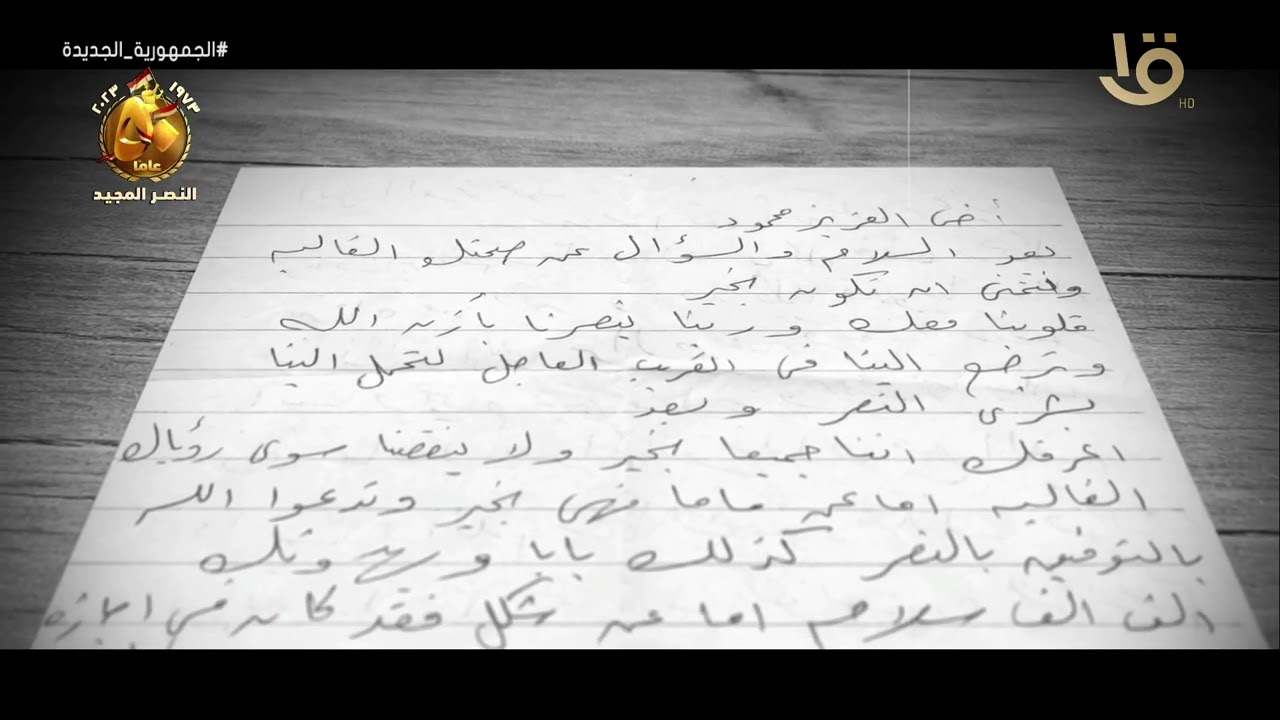 #الجمهورية_الجديدة
١٩٧٣
٢٠٢٣
٥٠
عامًا
النصر المجيد
HD
أخى العزيز محمود
بعد السلام والسؤال عن صحتك الغاليه
ونتمنى ان تكون بخير
قلوبنا معك وربنا ينصرنا بأزن الله
وترجع الينا فى القريب العاجل لتحمل الينا
بشرى النصر وبعد
اعرفك اننا جميعا بخير ولا ينقصنا سوى رؤياك
الغاليه اما عن ماما فهى بخير وتدعوا الله
بالتوفيق بالنصر كذلك بابا
الف الف سلام اما عن فقد كان في اجازه